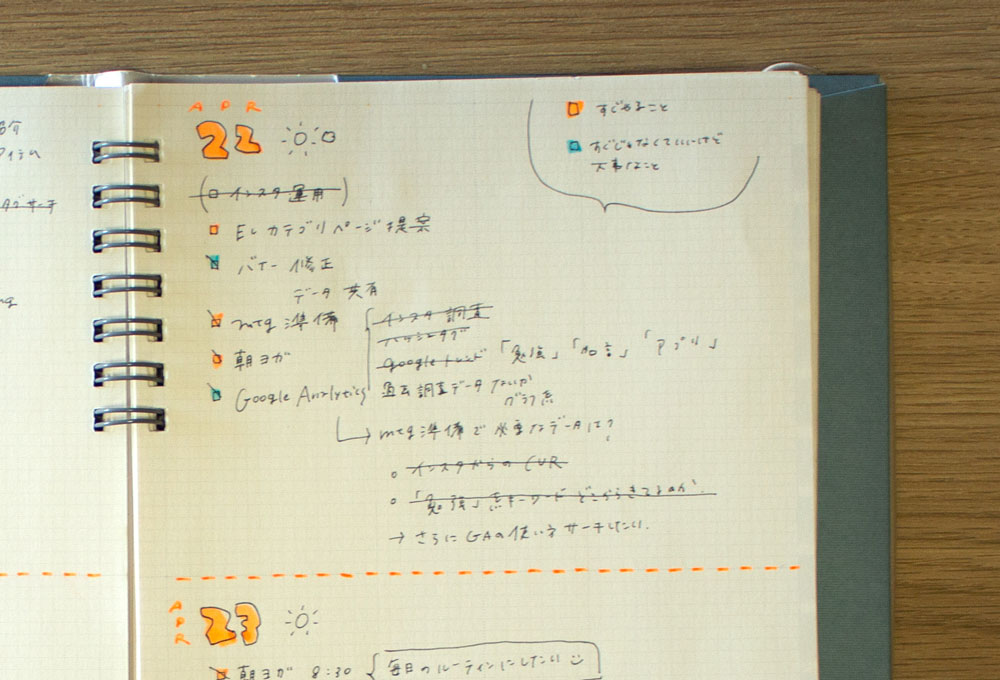 APR
22
すぐやること
すぐじゃなくていいけど
大事なこと
(インスタ運用)
タグサーチ
ELカテゴリページ提案
バナー 修正
データ共有
mtg準備
インスタ調査
ハッシュタグ
朝ヨガ
googleトレンド 「勉強」「加言」「アプリ」
Google Analytics
過去調査データないか
グラフ点
mtg準備で必要なデータは?
インスタからのCVR
「勉強」点キーワード どこからきてるのか.
→ さらにGAの使い方サーチしたい.
APR
23
朝ヨガ 8:30
毎日のルーティンにしたい